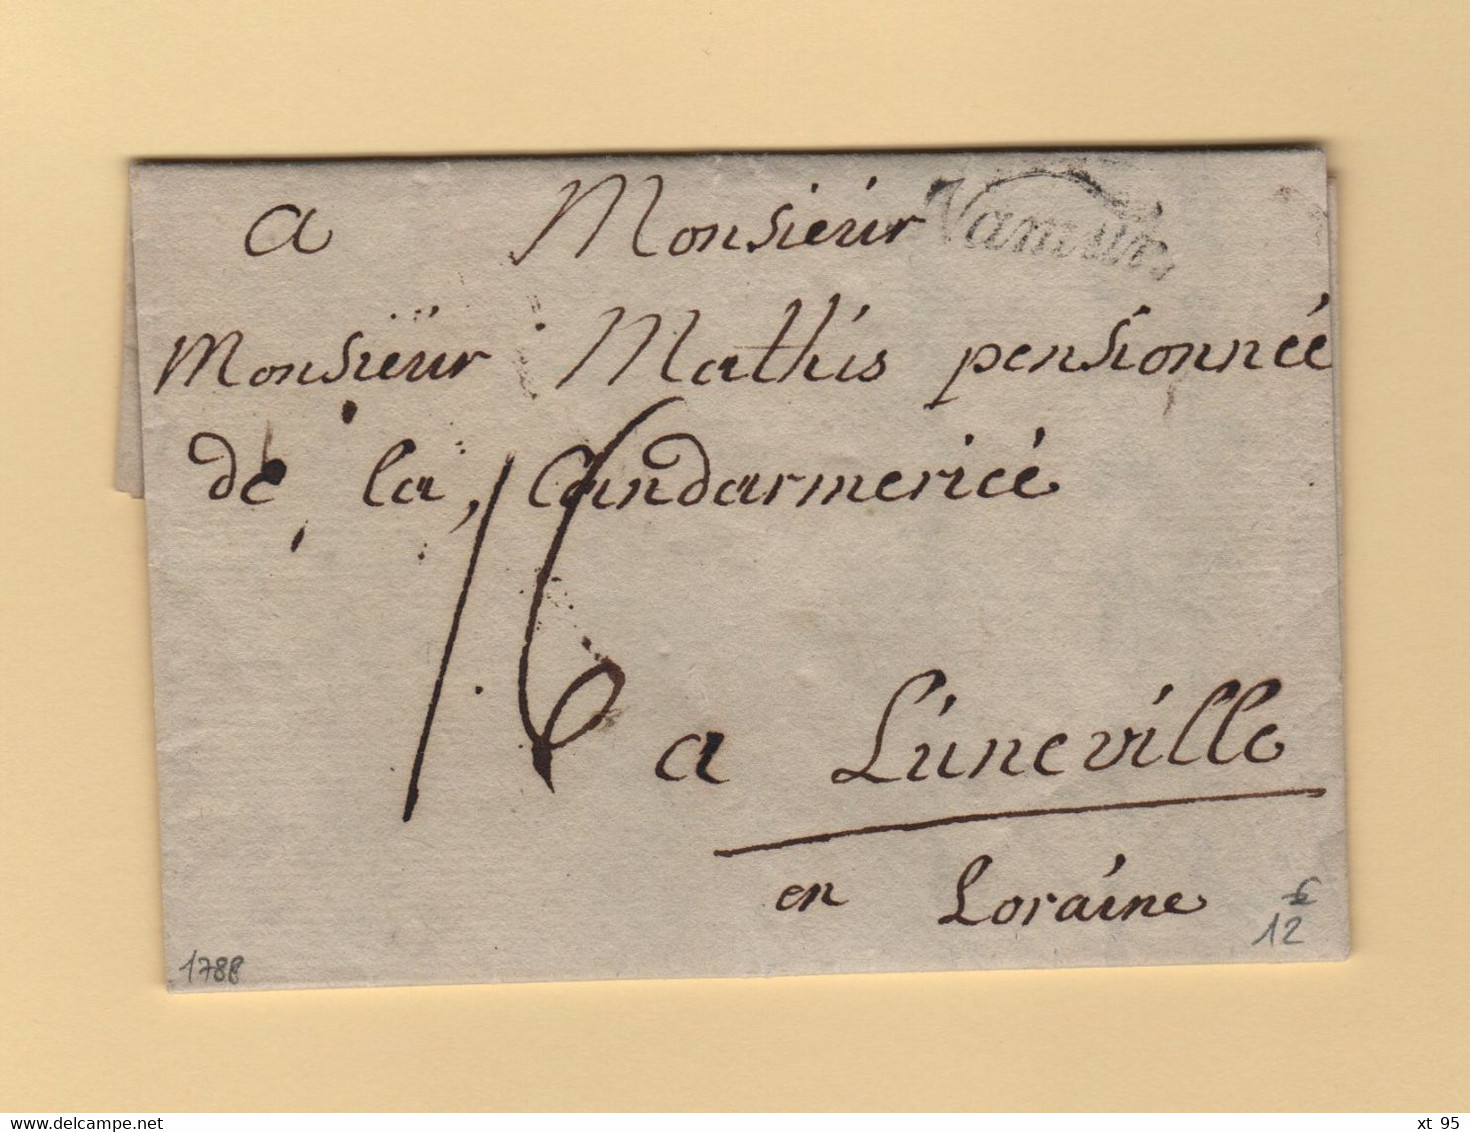 a Monsieur Namur
Monsieur Mathis pensionnée
de la, Candarmericé
16
a Lùneville
en Loraine
€
12
1788
www.delcampe.net
xt 95